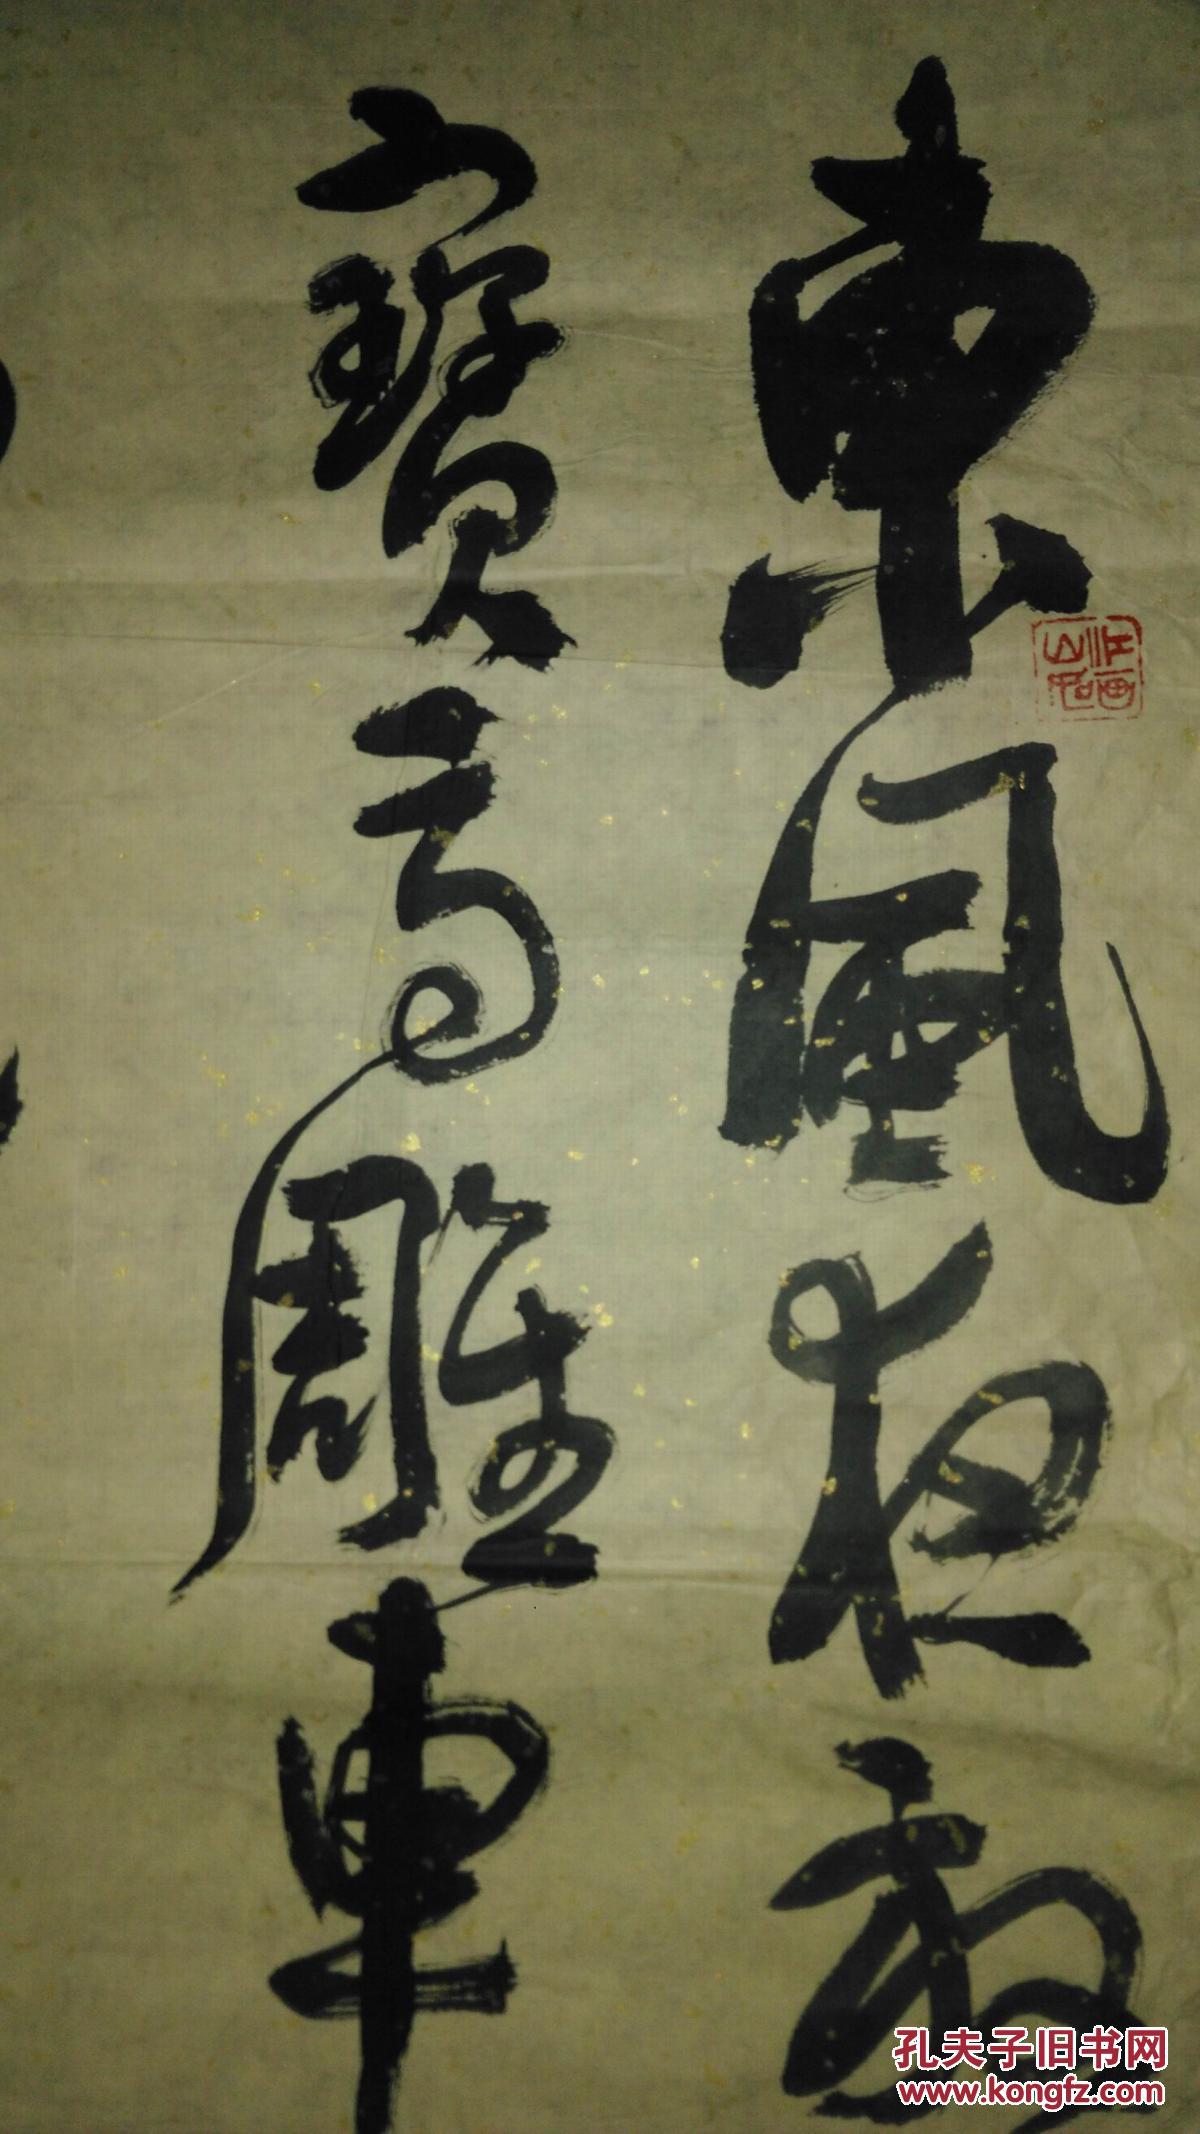 東風夜放
寶馬雕車
孔夫子旧书网
www.kongfz.com